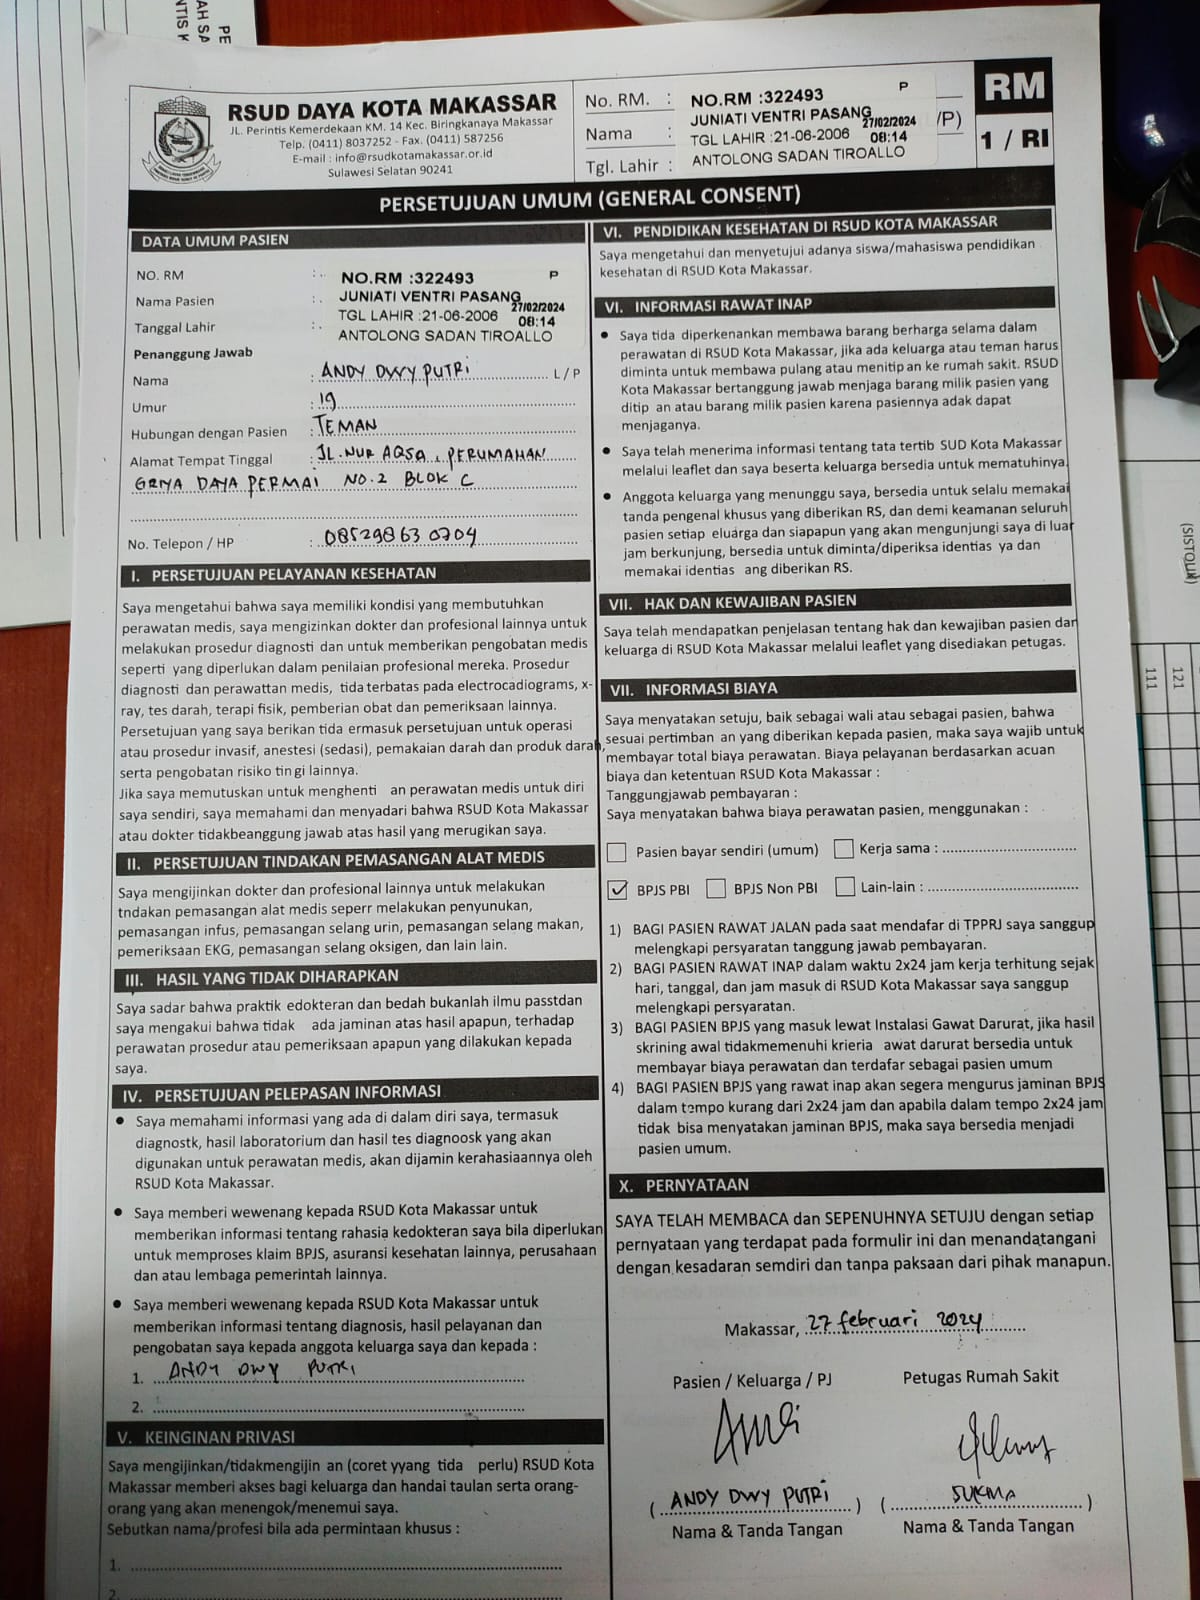 PE
AH SA
NTIS K
RSUD DAYA KOTA MAKASSAR
JL. Perintis Kemerdekaan KM. 14 Kec. Biringkanaya Makassar
Telp. (0411) 8037252 - Fax. (0411) 587256
E-mail : info@rsudkotamakassar.or.id
Sulawesi Selatan 90241
No. RM. :
Nama :
Tgl. Lahir :
NO.RM :322493 P
JUNIATI VENTRI PASANG
27/02/2024
TGL LAHIR :21-06-2006 08:14
ANTOLONG SADAN TIROALLO
/P)
RM
1 / RI
PERSETUJUAN UMUM (GENERAL CONSENT)
DATA UMUM PASIEN
NO. RM :
Nama Pasien :
Tanggal Lahir :
NO.RM :322493 P
JUNIATI VENTRI PASANG
27/02/2024
TGL LAHIR :21-06-2006 08:14
ANTOLONG SADAN TIROALLO
Penanggung Jawab
Nama : ANDY DWY PUTRI L / P
Umur : 19
Hubungan dengan Pasien : TEMAN
Alamat Tempat Tinggal : JL. NUR AQSA, PERUMAHAN
GRIYA DAYA PERMAI NO.2 BLOK C
No. Telepon / HP : 085298630704
I. PERSETUJUAN PELAYANAN KESEHATAN
Saya mengetahui bahwa saya memiliki kondisi yang membutuhkan
perawatan medis, saya mengizinkan dokter dan profesional lainnya untuk
melakukan prosedur diagnosti dan untuk memberikan pengobatan medis
seperti yang diperlukan dalam penilaian profesional mereka. Prosedur
diagnosti dan perawattan medis, tida terbatas pada electrocadiograms, x-
ray, tes darah, terapi fisik, pemberian obat dan pemeriksaan lainnya.
Persetujuan yang saya berikan tida ermasuk persetujuan untuk operasi
atau prosedur invasif, anestesi (sedasi), pemakaian darah dan produk darah,
serta pengobatan risiko tin gi lainnya.
Jika saya memutuskan untuk menghenti an perawatan medis untuk diri
saya sendiri, saya memahami dan menyadari bahwa RSUD Kota Makassar
atau dokter tidakbeanggung jawab atas hasil yang merugikan saya.
II. PERSETUJUAN TINDAKAN PEMASANGAN ALAT MEDIS
Saya mengijinkan dokter dan profesional lainnya untuk melakukan
tndakan pemasangan alat medis seperr melakukan penyunukan,
pemasangan infus, pemasangan selang urin, pemasangan selang makan,
pemeriksaan EKG, pemasangan selang oksigen, dan lain lain.
III. HASIL YANG TIDAK DIHARAPKAN
Saya sadar bahwa praktik edokteran dan bedah bukanlah ilmu passtdan
saya mengakui bahwa tidak ada jaminan atas hasil apapun, terhadap
perawatan prosedur atau pemeriksaan apapun yang dilakukan kepada
saya.
IV. PERSETUJUAN PELEPASAN INFORMASI
• Saya memahami informasi yang ada di dalam diri saya, termasuk
diagnostk, hasil laboratorium dan hasil tes diagnoosk yang akan
digunakan untuk perawatan medis, akan dijamin kerahasiaannya oleh
RSUD Kota Makassar.
• Saya memberi wewenang kepada RSUD Kota Makassar untuk
memberikan informasi tentang rahasia kedokteran saya bila diperlukan
untuk memproses klaim BPJS, asuransi kesehatan lainnya, perusahaan
dan atau lembaga pemerintah lainnya.
• Saya memberi wewenang kepada RSUD Kota Makassar untuk
memberikan informasi tentang diagnosis, hasil pelayanan dan
pengobatan saya kepada anggota keluarga saya dan kepada :
1. ANDY DWY PUTRI
2.
V. KEINGINAN PRIVASI
Saya mengijinkan/tidakmengijin an (coret yyang tida perlu) RSUD Kota
Makassar memberi akses bagi keluarga dan handai taulan serta orang-
orang yang akan menengok/menemui saya.
Sebutkan nama/profesi bila ada permintaan khusus :
1.
2.
VI. PENDIDIKAN KESEHATAN DI RSUD KOTA MAKASSAR
Saya mengetahui dan menyetujui adanya siswa/mahasiswa pendidikan
kesehatan di RSUD Kota Makassar.
VI. INFORMASI RAWAT INAP
• Saya tida diperkenankan membawa barang berharga selama dalam
perawatan di RSUD Kota Makassar, jika ada keluarga atau teman harus
diminta untuk membawa pulang atau menitip an ke rumah sakit. RSUD
Kota Makassar bertanggung jawab menjaga barang milik pasien yang
ditip an atau barang milik pasien karena pasiennya adak dapat
menjaganya.
• Saya telah menerima informasi tentang tata tertib SUD Kota Makassar
melalui leaflet dan saya beserta keluarga bersedia untuk mematuhinya.
• Anggota keluarga yang menunggu saya, bersedia untuk selalu memakai
tanda pengenal khusus yang diberikan RS, dan demi keamanan seluruh
pasien setiap eluarga dan siapapun yang akan mengunjungi saya di luar
jam berkunjung, bersedia untuk diminta/diperiksa identias ya dan
memakai identias ang diberikan RS.
VII. HAK DAN KEWAJIBAN PASIEN
Saya telah mendapatkan penjelasan tentang hak dan kewajiban pasien dar
keluarga di RSUD Kota Makassar melalui leaflet yang disediakan petugas.
VII. INFORMASI BIAYA
Saya menyatakan setuju, baik sebagai wali atau sebagai pasien, bahwa
sesuai pertimban an yang diberikan kepada pasien, maka saya wajib untuk
membayar total biaya perawatan. Biaya pelayanan berdasarkan acuan
biaya dan ketentuan RSUD Kota Makassar :
Tanggungjawab pembayaran :
Saya menyatakan bahwa biaya perawatan pasien, menggunakan :
Pasien bayar sendiri (umum) Kerja sama :
✓ BPJS PBI BPJS Non PBI Lain-lain :
1) BAGI PASIEN RAWAT JALAN pada saat mendafar di TPPRJ saya sanggup
melengkapi persyaratan tanggung jawab pembayaran.
2) BAGI PASIEN RAWAT INAP dalam waktu 2x24 jam kerja terhitung sejak
hari, tanggal, dan jam masuk di RSUD Kota Makassar saya sanggup
melengkapi persyaratan.
3) BAGI PASIEN BPJS yang masuk lewat Instalasi Gawat Darurat, jika hasil
skrining awal tidakmemenuhi krieria awat darurat bersedia untuk
membayar biaya perawatan dan terdafar sebagai pasien umum
4) BAGI PASIEN BPJS yang rawat inap akan segera mengurus jaminan BPJS
dalam tempo kurang dari 2x24 jam dan apabila dalam tempo 2x24 jam
tidak bisa menyatakan jaminan BPJS, maka saya bersedia menjadi
pasien umum.
X. PERNYATAAN
SAYA TELAH MEMBACA dan SEPENUHNYA SETUJU dengan setiap
pernyataan yang terdapat pada formulir ini dan menandatangani
dengan kesadaran semdiri dan tanpa paksaan dari pihak manapun.
Makassar, 27 februari 2024
Pasien / Keluarga / PJ Petugas Rumah Sakit
( ANDY DWY PUTRI ) ( SUKMA )
Nama & Tanda Tangan Nama & Tanda Tangan
(SISTOLIK)
121
111